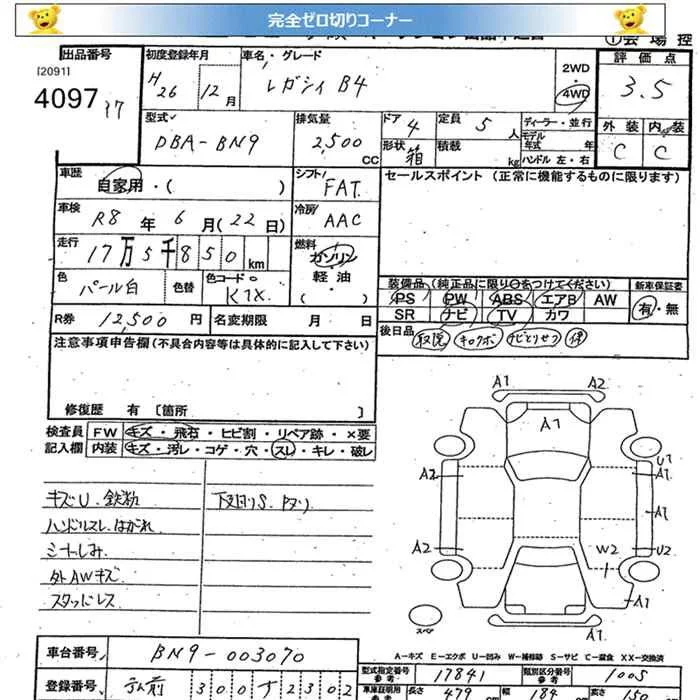 完全ゼロ切りコーナー
①会場控
出品番号
[2091]
4097
37
初度登録年月
H26 12月
車名・グレード
レガシィ B4
2WD
4WD
評価点
3.5
外装 内装
C C
型式
DBA-BN9
排気量
2,500 CC
ドア 4
形状 箱
定員 5人
積載 kg
ディーラー・並行
モデル年式 年
ハンドル左・右
車歴
自家用・( )
シフト
FAT
セールスポイント (正常に機能するものに限ります)
車検
R8年6月(22日)
冷房
AAC
走行
17万5千850km
燃料
ガソリン
軽油
( )
色
パール白
色替
色コードNo
K1X
装備品 (純正品に限り○をつけてください)
PS PW ABS エアB AW
SR ナビ TV カワ
新車保証書
有・無
R券 12,500円
名変期限 月 日
後日品
取説 キロクボ ナビとりせつ 保
注意事項申告欄(不具合内容等は具体的に記入して下さい)
修復歴 有 [箇所 ]
検査員記入欄
FW キズ・飛石・ヒビ割・リペア跡・×要
内装 キズ・汚レ・コゲ・穴・スレ・キレ・破レ
キズU 鉄粉
下廻りS
ハンドルスレ はがれ
シートしみ
外AWキズ
スタッドレス
A1 A2
A1
A2 U1
A1
A1
A2 W2 U2
A1
スペア
A-キズ E-エクボ U-凹み W-補修跡 S-サビ C-腐食 XX-交換済
車台番号 BN9-003070
登録番号 300 す 2302
型式指定番号参考 17841
類別区分番号参考 1005
車庫証明用参考 長さ 479cm 幅 184cm 高さ 150cm